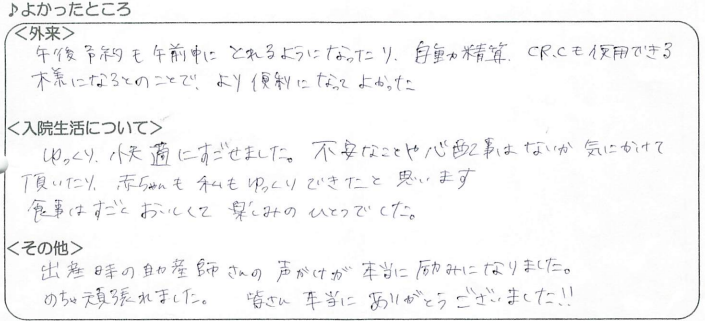 ♪よかったところ
<外来>
午後予約も午前中にとれるようになったり、自動精算、CR.Cも使用できる
様になるとのことで、より便利になってよかった
<入院生活について>
ゆっくり、快適にすごせました。不安なことや心配事はないか気にかけて
頂いたり、赤ちゃんも私もゆっくりできたと思います
食事はすごくおいしくて楽しみのひとつでした。
<その他>
出産時の助産師さんの声がけが本当に励みになりました。
めちゃ頑張れました。 皆さん本当にありがとうございました!!